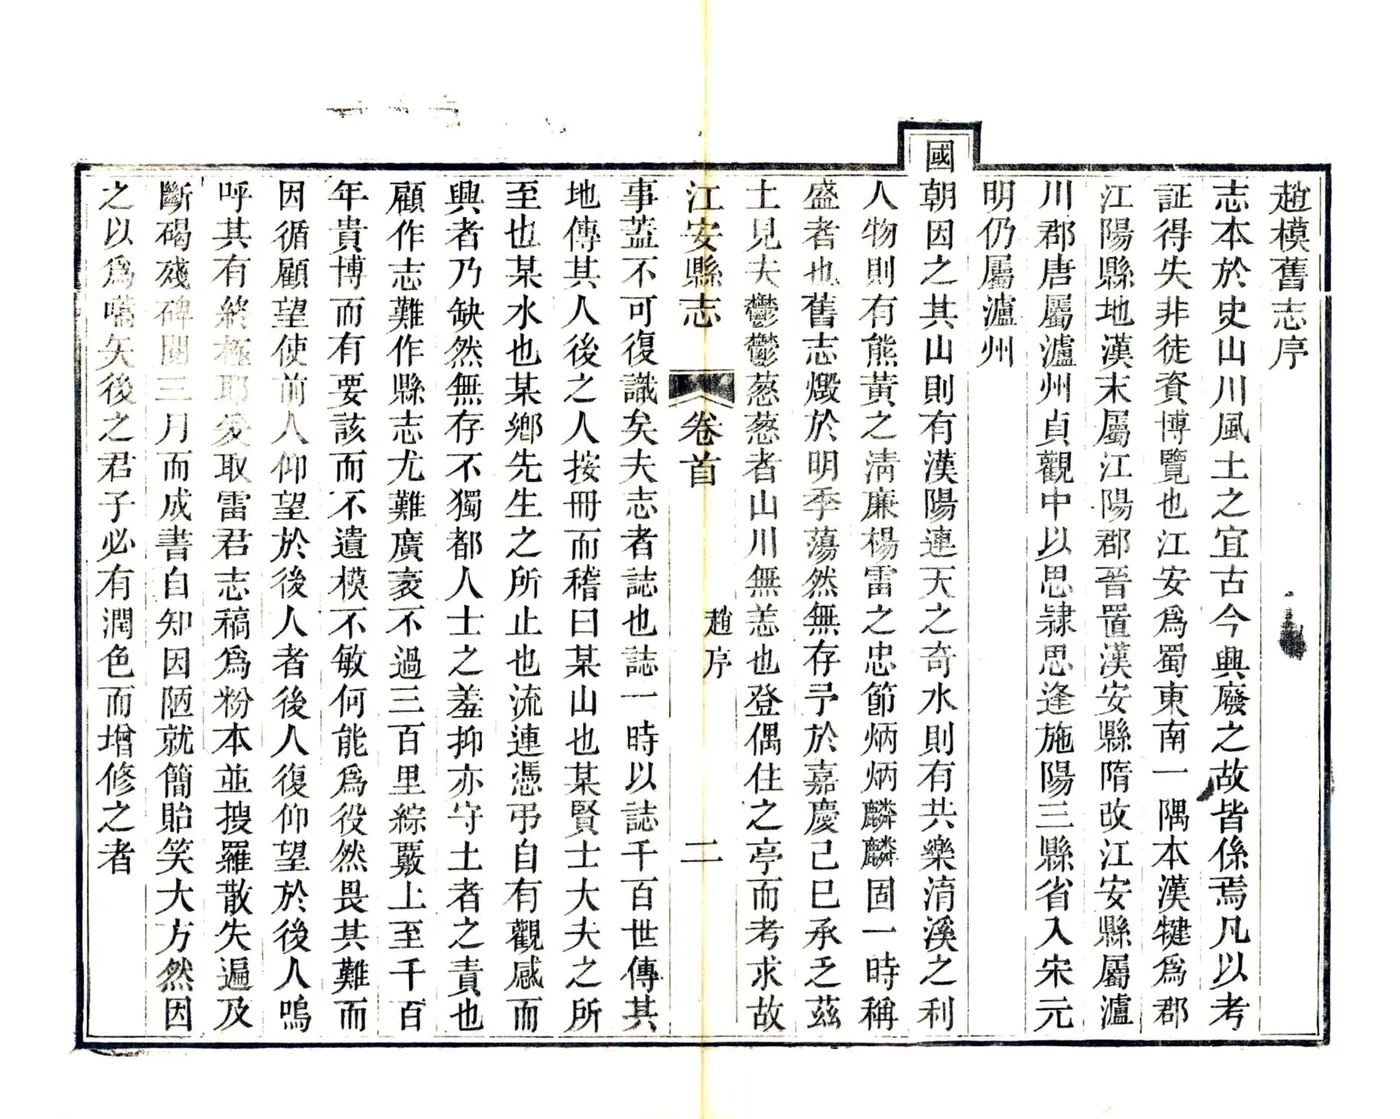 趙模舊志序
志本於史山川風土之宜古今興廢之故皆係焉凡以考
証得失非徒資博覽也江安爲蜀東南一隅本漢犍爲郡
江陽縣地漢末屬江陽郡晉置漢安縣隋改江安縣屬瀘
川郡唐屬瀘州貞觀中以思隸思逢施陽三縣省入宋元
明仍屬瀘州
國朝因之其山則有漢陽連天之奇水則有共樂淯溪之利
人物則有熊黃之淸廉楊雷之忠節炳炳麟麟固一時稱
盛者也舊志燬於明季蕩然無存予於嘉慶己巳承乏茲
土見夫鬱鬱葱葱者山川無恙也登偶住之亭而考求故
江安縣志 卷首 趙序 二
事蓋不可復識矣夫志者誌也誌一時以誌千百世傳其
地傳其人後之人按冊而稽曰某山也某賢士大夫之所
至也某水也某鄉先生之所止也流連憑弔自有觀感而
興者乃缺然無存不獨都人士之羞抑亦守土者之責也
顧作志難作縣志尤難廣袤不過三百里綜覈上至千百
年貴博而有要該而不遺模不敏何能爲役然畏其難而
因循顧望使前人仰望於後人者後人復仰望於後人嗚
呼其有終極耶爰取雷君志稿爲粉本並搜羅散失遍及
斷碣殘碑閱三月而成書自知因陋就簡貽笑大方然因
之以爲嚆矢後之君子必有潤色而增修之者